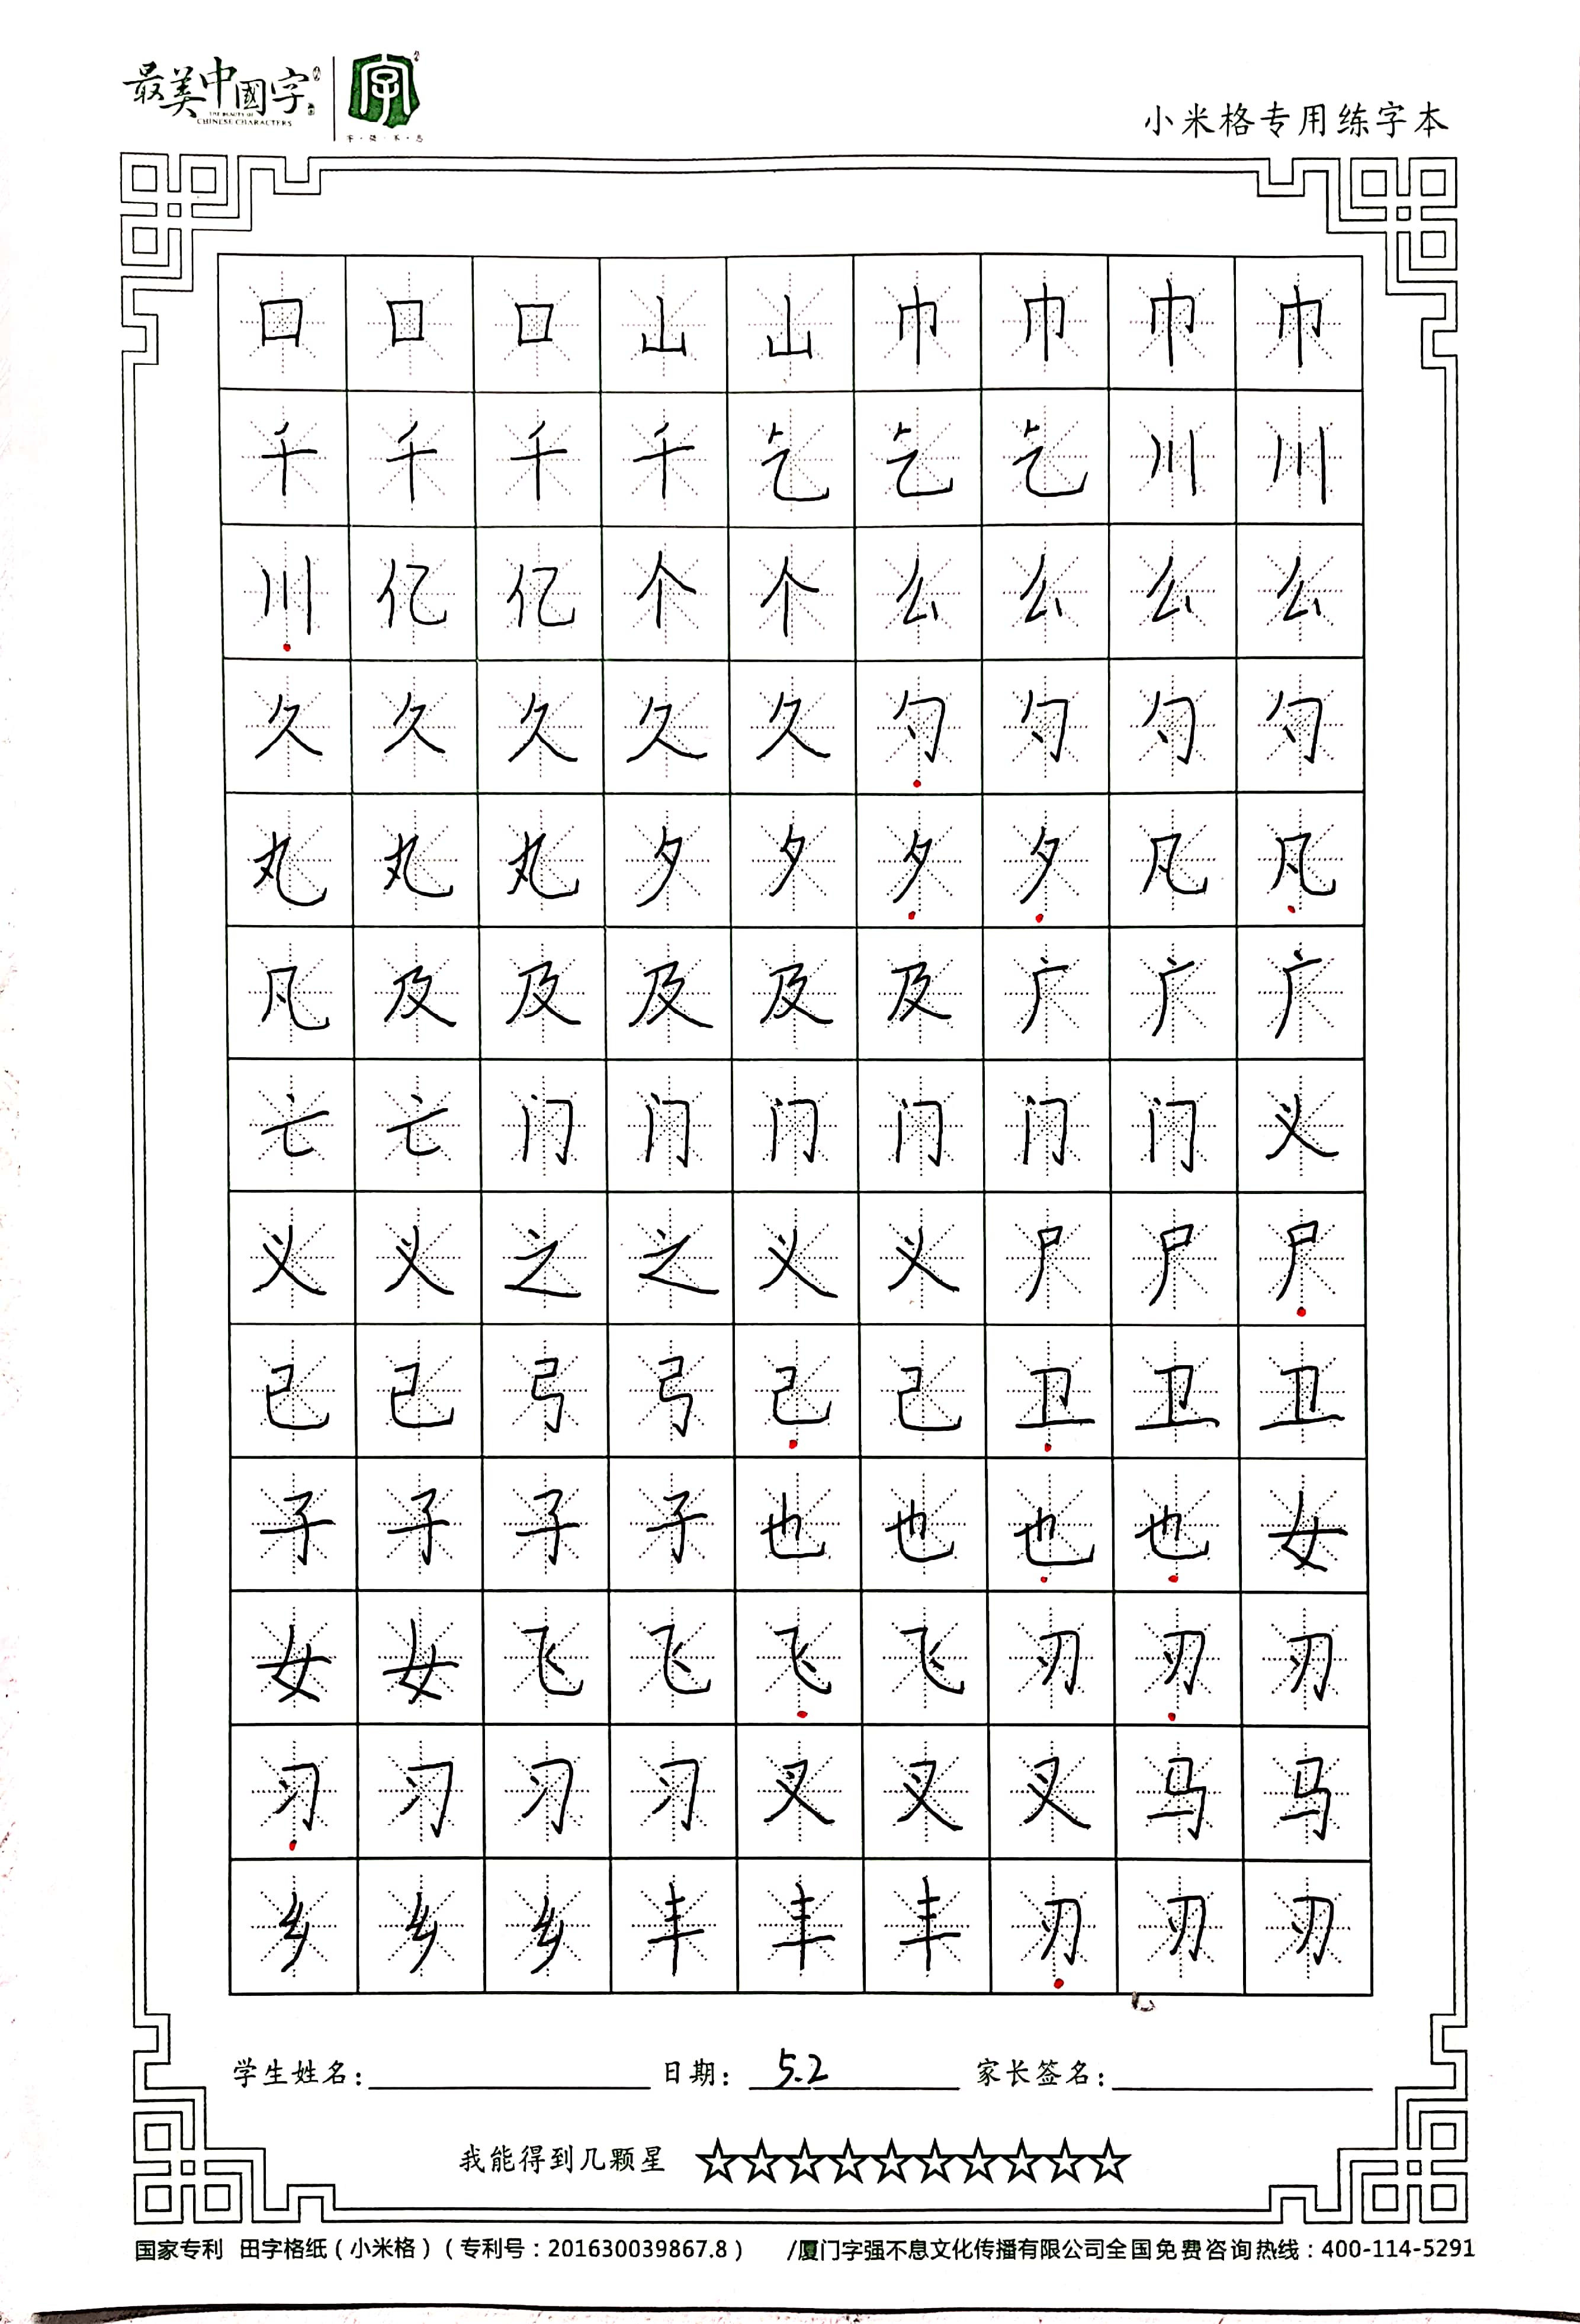 最美中國字
THE BEAUTY OF
CHINESE CHARACTERS
字
小米格专用练字本
口 口 口 山 山 巾 巾 巾 巾
千 千 千 千 乞 乞 乞 川 川
川 亿 亿 个 个 么 么 么 么
久 久 久 久 久 勺 勺 勺 勺
丸 丸 丸 夕 夕 夕 夕 凡 凡
凡 及 及 及 及 及 广 广 广
亡 亡 门 门 门 门 门 门 义
义 义 之 之 义 义 尸 尸 尸
已 已 弓 弓 己 己 卫 卫 卫
子 子 子 子 也 也 也 也 女
女 女 飞 飞 飞 飞 刃 刃 刃
习 习 习 习 叉 叉 叉 马 马
乡 乡 乡 丰 丰 丰 刃 刃 刃
学生姓名： 日期： 5.2 家长签名：
我能得到几颗星 ☆☆☆☆☆☆☆☆☆☆
国家专利 田字格纸（小米格）（专利号：201630039867.8） /厦门字强不息文化传播有限公司全国免费咨询热线：400-114-5291